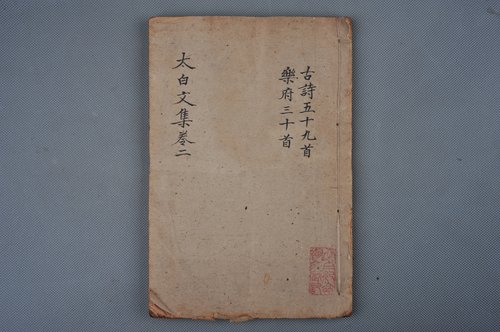 古詩五十九首
樂府三十首
太白文集卷二